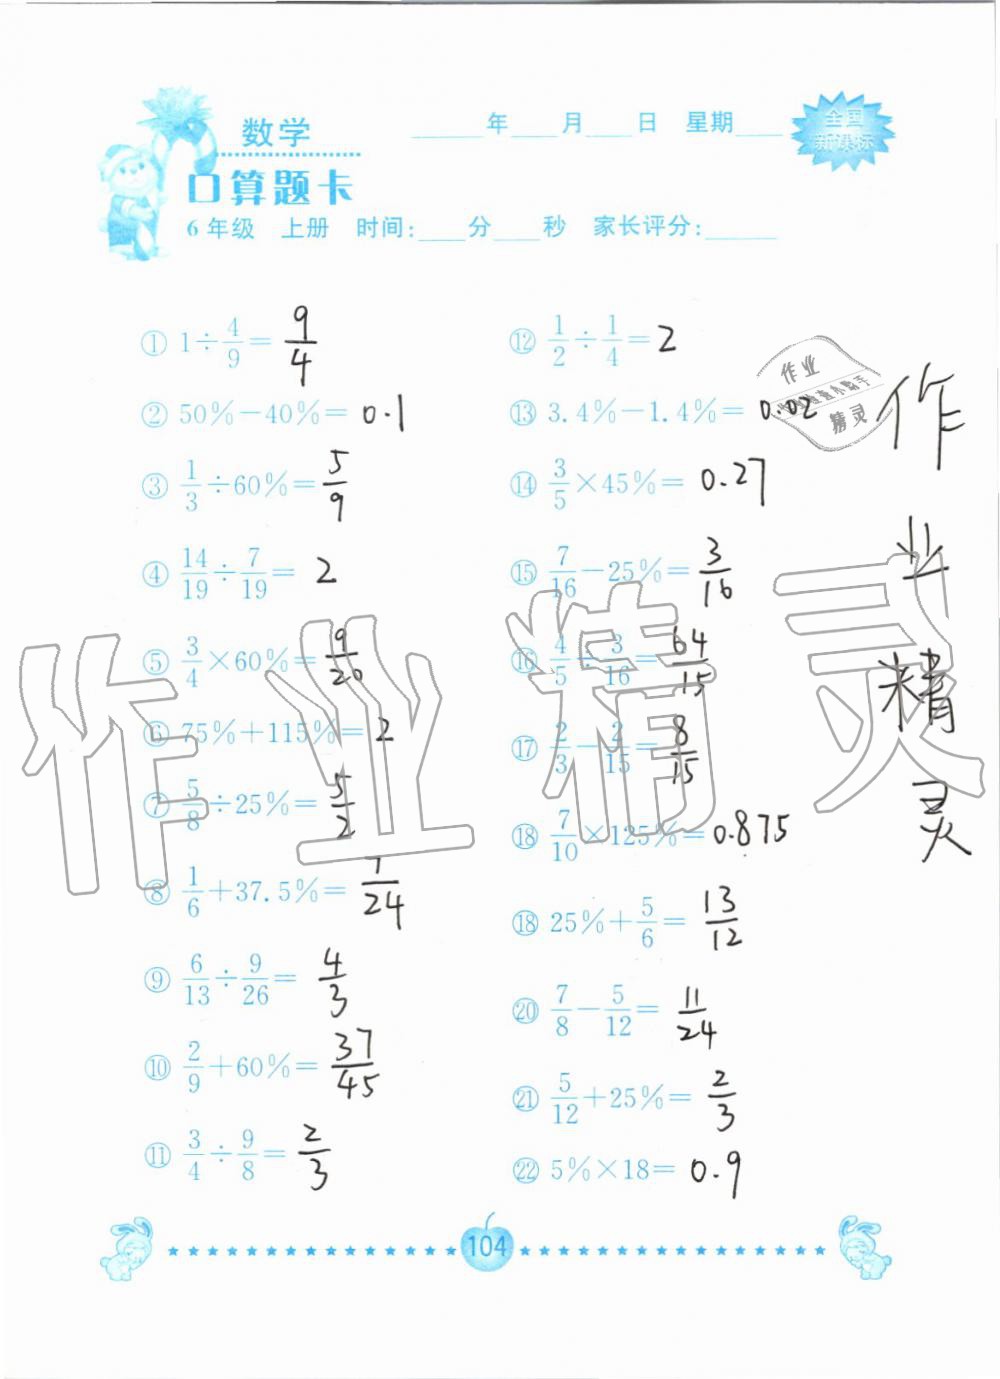 数学
____年____月____日 星期____
全国
新课标
口算题卡
6年级 上册 时间:____分____秒 家长评分:______
① 1÷4/9= 9/4
② 50%-40%= 0.1
③ 1/3÷60%= 5/9
④ 14/19÷7/19= 2
⑤ 3/4×60%= 9/20
⑥ 75%+115%= 2
⑦ 5/8÷25%= 5/2
⑧ 1/6+37.5%= 7/24
⑨ 6/13÷9/26= 4/3
⑩ 2/9+60%= 37/45
⑪ 3/4÷9/8= 2/3
⑫ 1/2÷1/4= 2
⑬ 3.4%-1.4%= 0.02
⑭ 3/5×45%= 0.27
⑮ 7/16-25%= 3/16
⑯ 4/5÷3/16= 64/15
⑰ 2/3-2/15= 8/15
⑱ 7/10×125%= 0.875
⑱ 25%+5/6= 13/12
⑳ 7/8-5/12= 11/24
㉑ 5/12+25%= 2/3
㉒ 5%×18= 0.9
作业
精灵
作业精灵
作业精灵
104